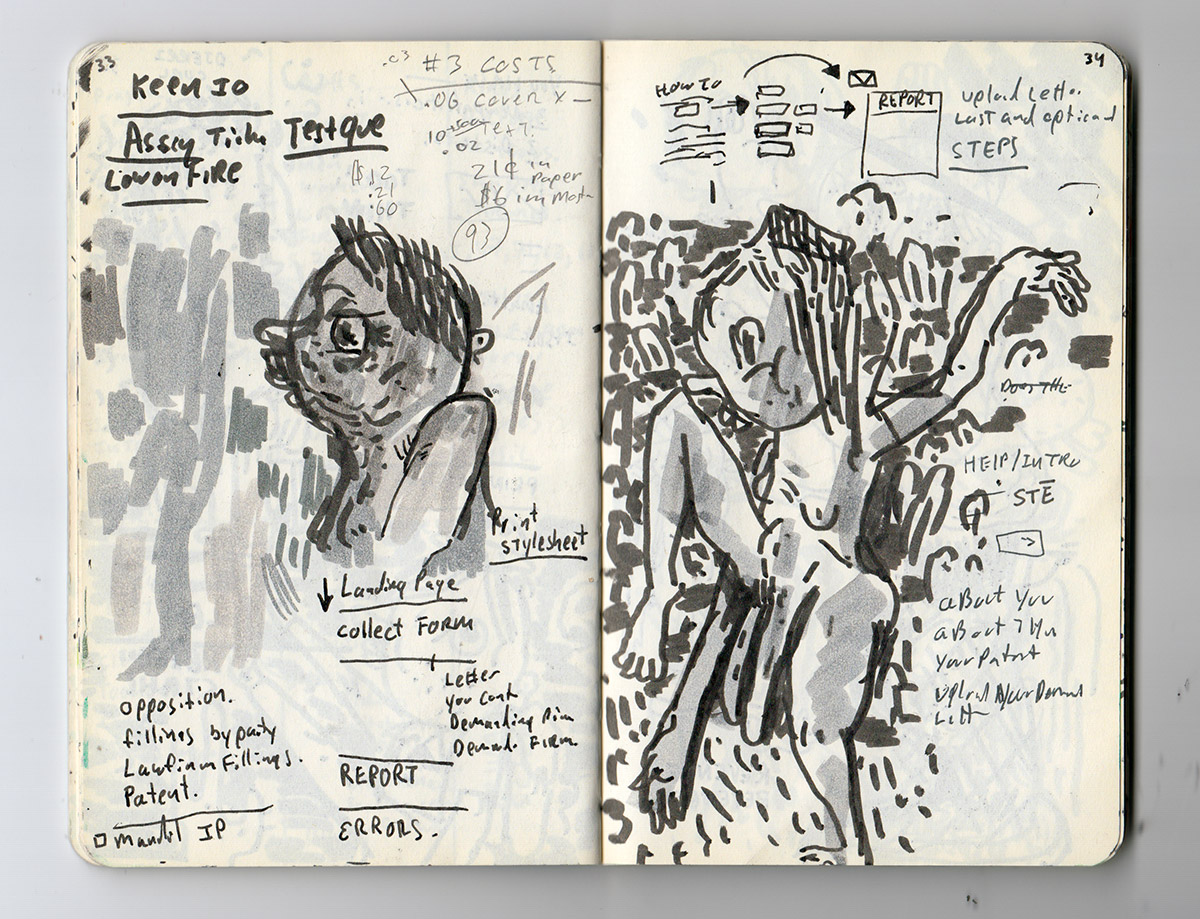 33
Keen Io
Testque
Low on FIRE
#3 COSTS
.06 cover x –
10
TexT:
.02
$12
.21
.60
21¢ in
paper
$6 in
93
Print
stylesheet
↓ Landing Page
collect FORM
Letter
You
Demanding
Demand. FIRM
REPORT
ERRORS.
opposition.
fillings by party
Lawfirm Fillings.
Patent.
IP
34
How To
REPORT
upload Letter
Last and optional
STEPS
Does The
HELP/INTRO
aBout You
aBout
Your Patent
upload Your Demand